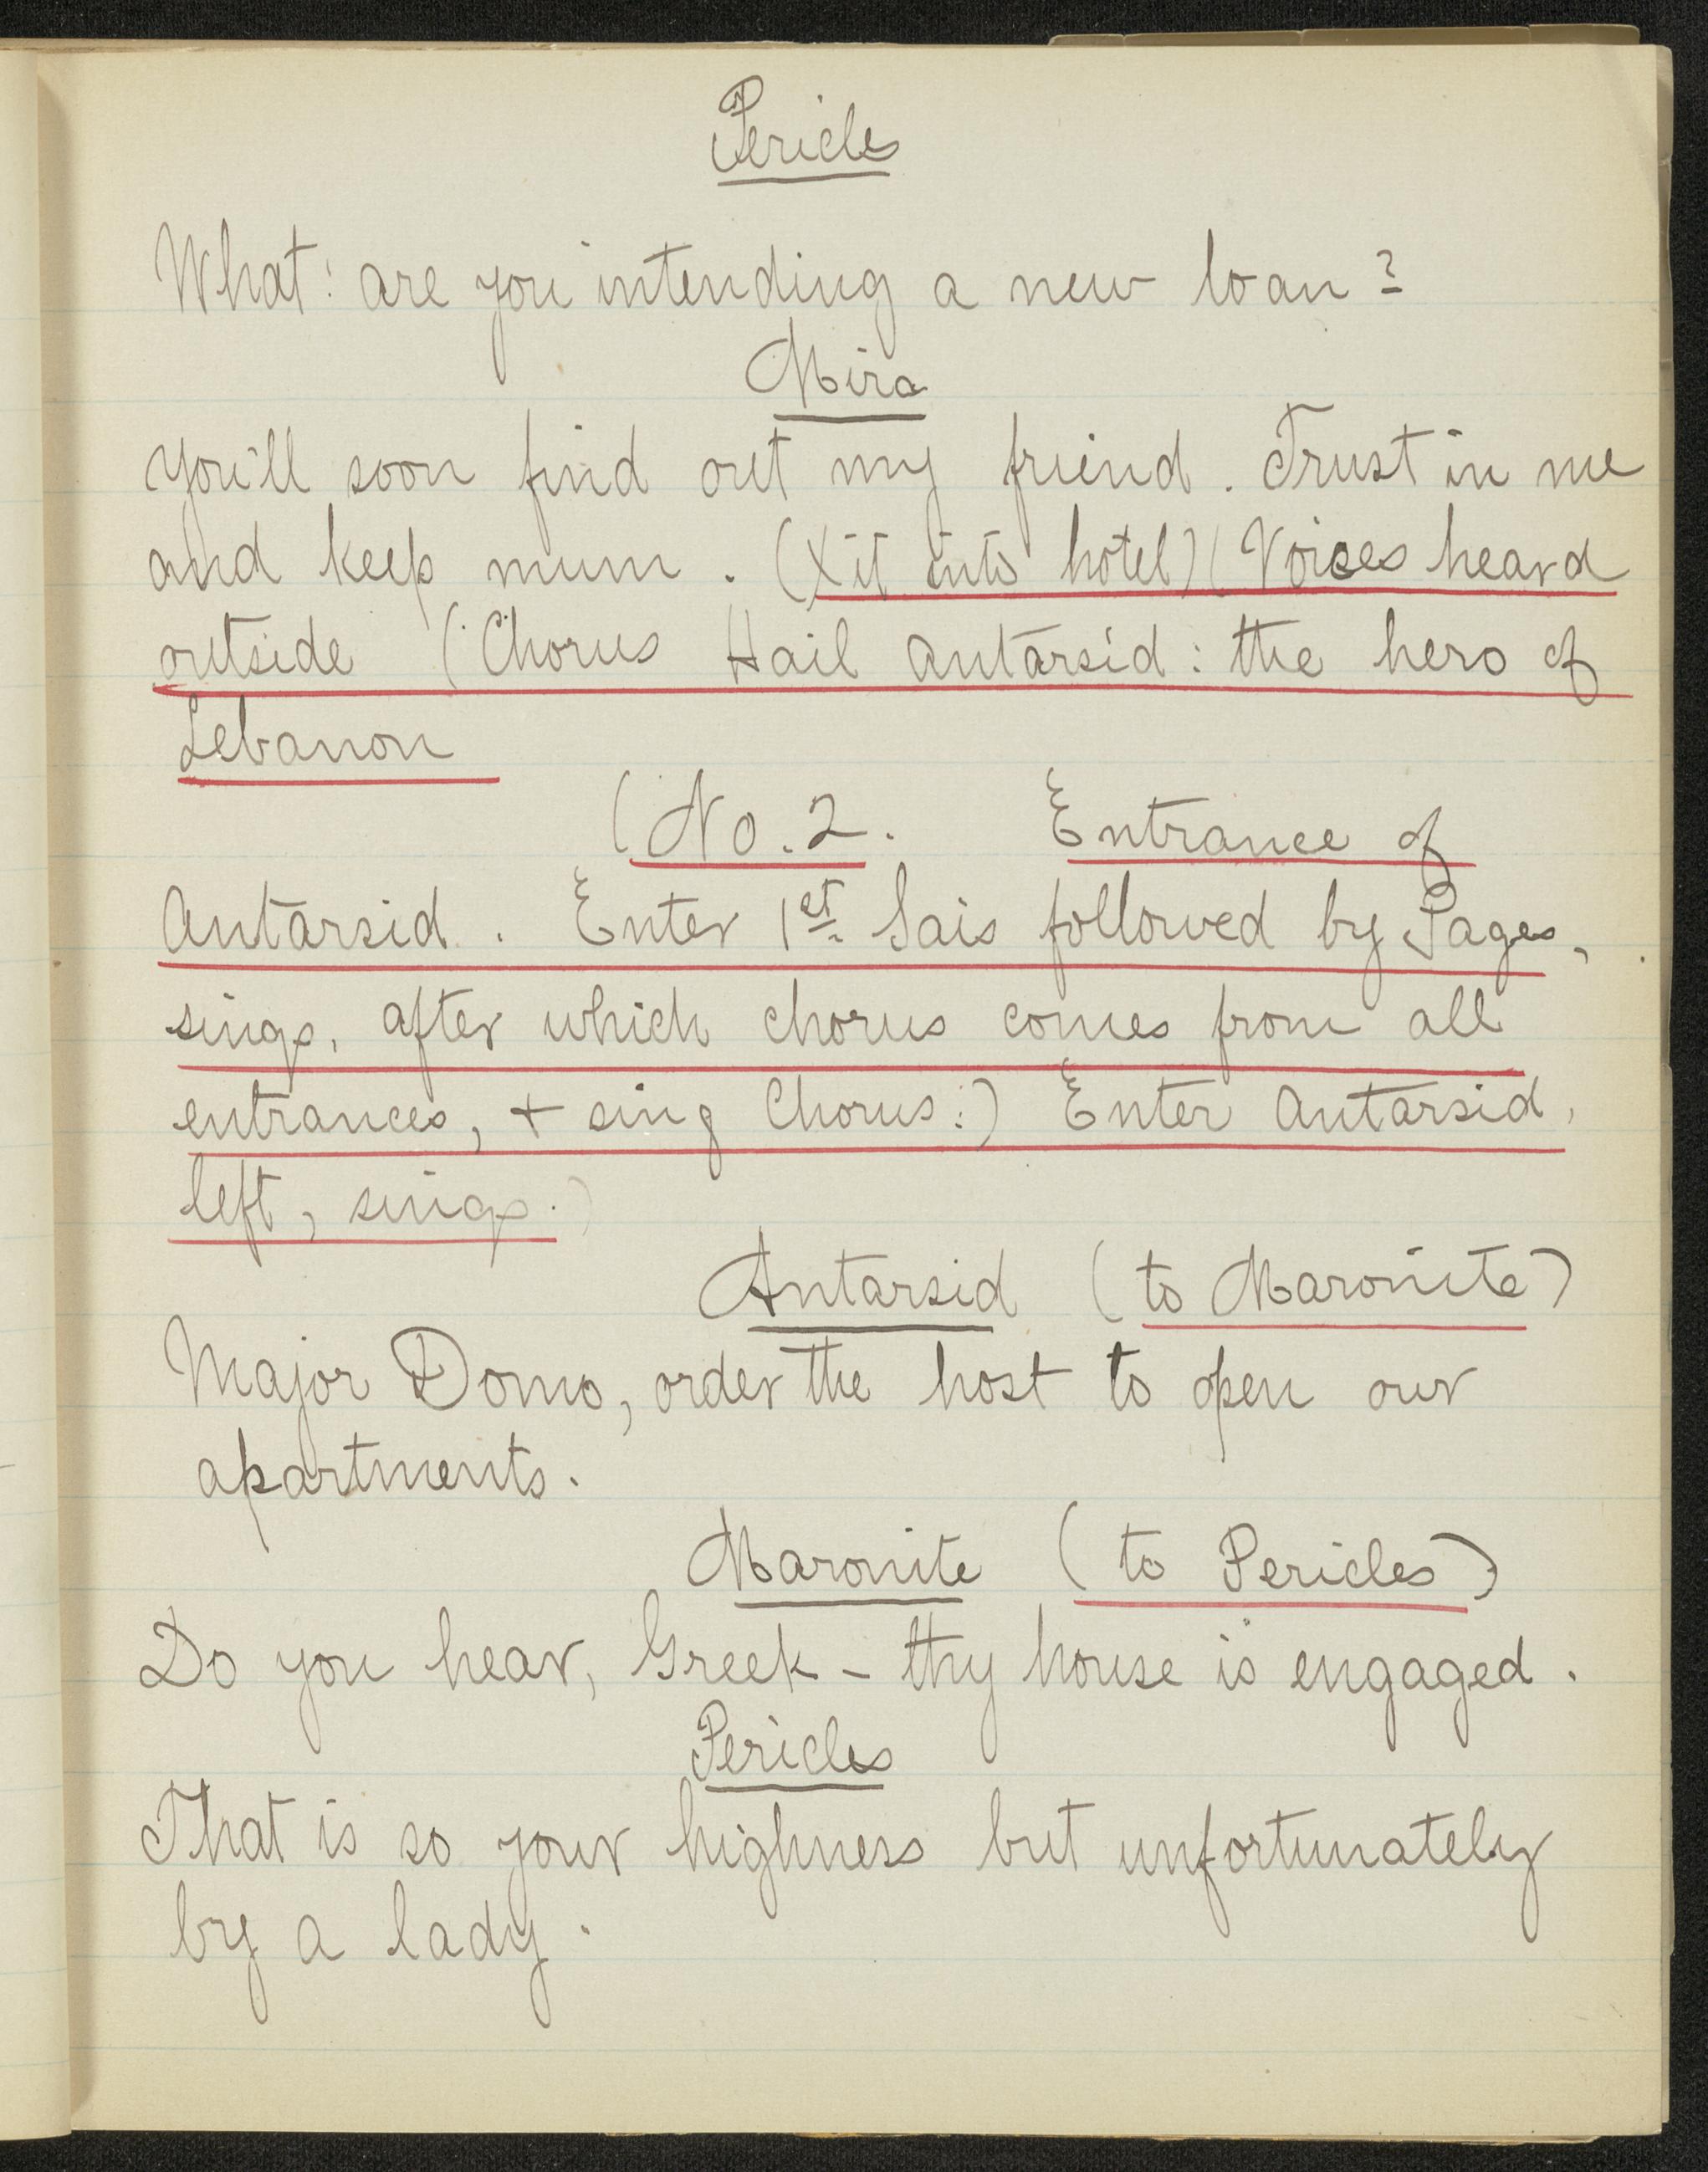 Pericles
What: are you intending a new loan?
Mira
You'll soon find out my friend. Trust in me
and keep mum. (Xit into hotel) (Voices heard
outside (Chorus Hail Antarsid: the hero of
Lebanon
(No. 2. Entrance of
Antarsid. Enter 1st. Sais followed by Pages,
sings, after which chorus comes from all
entrances, + sing Chorus:) Enter Antarsid,
left, sings.)
Antarsid (to Maronite)
Major Domo, order the host to open our
apartments.
Maronite (to Pericles)
Do you hear, Greek - thy house is engaged.
Pericles
That is so your highness but unfortunately
by a lady.